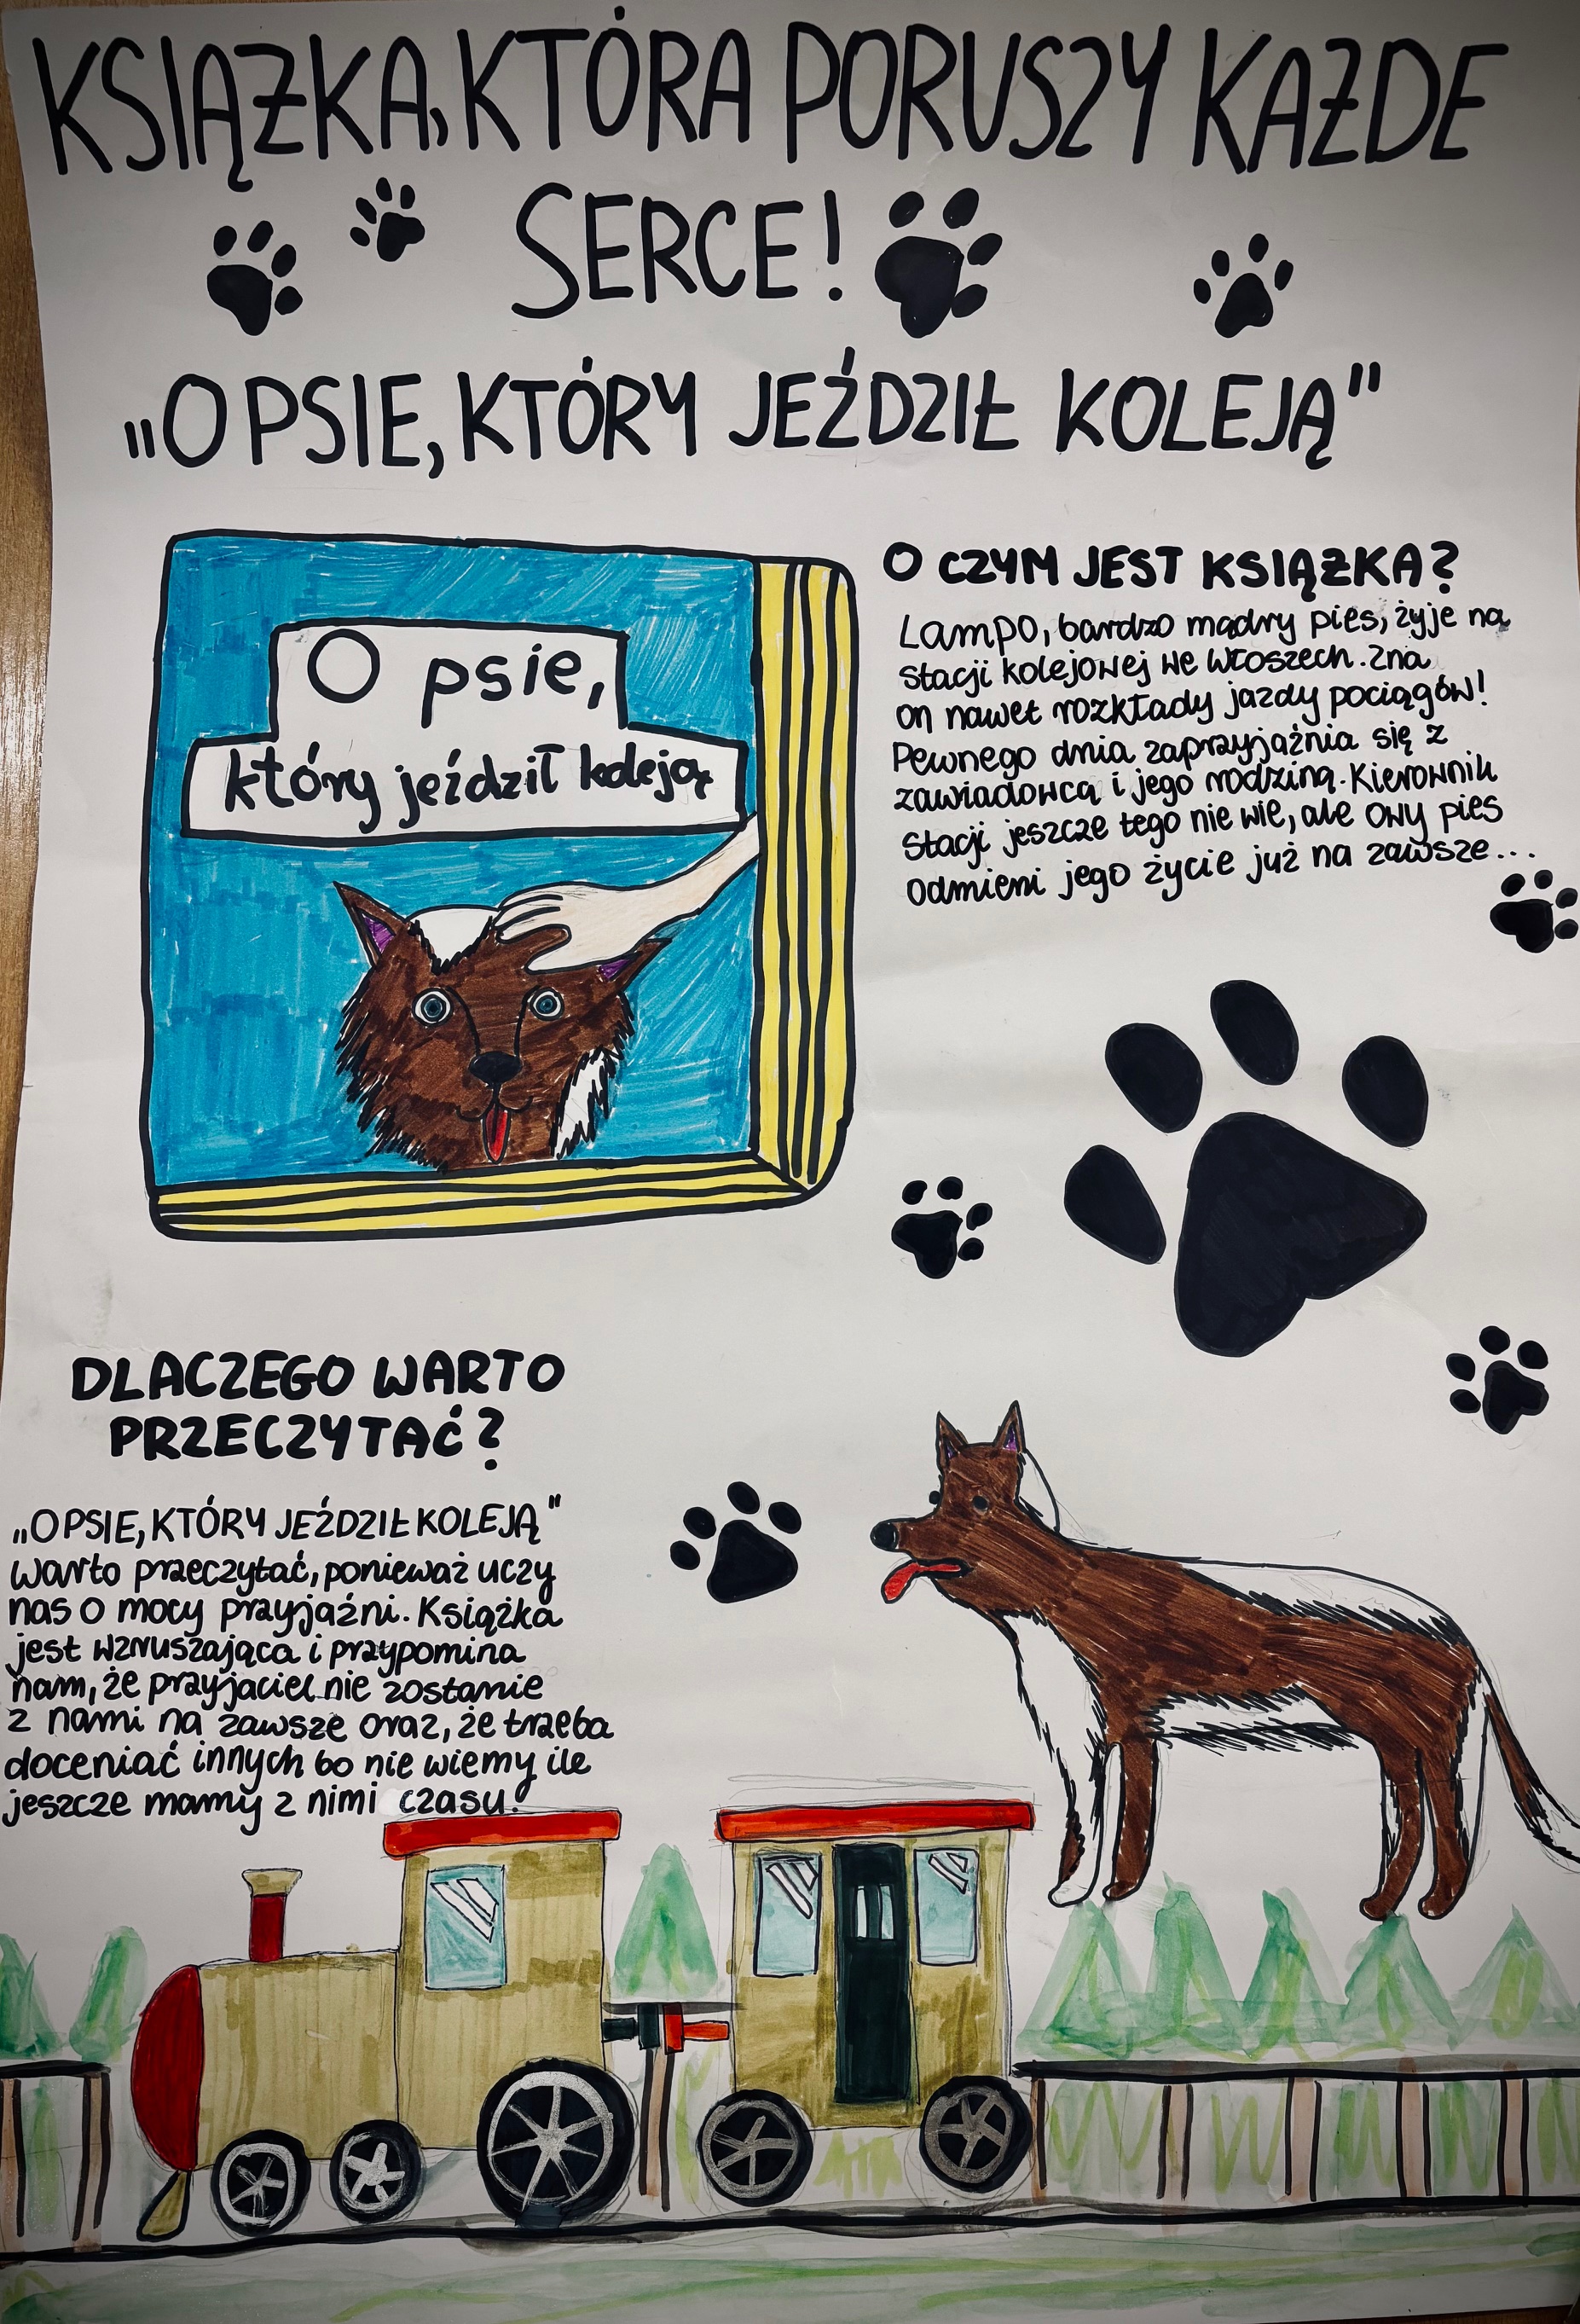 KSIĄŻKA, KTÓRA PORUSZY KAŻDE
SERCE!
„O PSIE, KTÓRY JEŹDZIŁ KOLEJĄ"
O psie,
który jeździł koleją
O CZYM JEST KSIĄŻKA?
Lampo, bardzo mądry pies, żyje na
stacji kolejowej we Włoszech. Zna
on nawet rozkłady jazdy pociągów!
Pewnego dnia zaprzyjaźnia się z
zawiadowcą i jego rodziną. Kierownik
stacji jeszcze tego nie wie, ale owy pies
odmieni jego życie już na zawsze...
DLACZEGO WARTO
PRZECZYTAĆ?
„O PSIE, KTÓRY JEŹDZIŁ KOLEJĄ"
warto przeczytać, ponieważ uczy
nas o mocy przyjaźni. Książka
jest wzruszająca i przypomina
nam, że przyjaciel nie zostanie
z nami na zawsze oraz, że trzeba
doceniać innych bo nie wiemy ile
jeszcze mamy z nimi czasu.